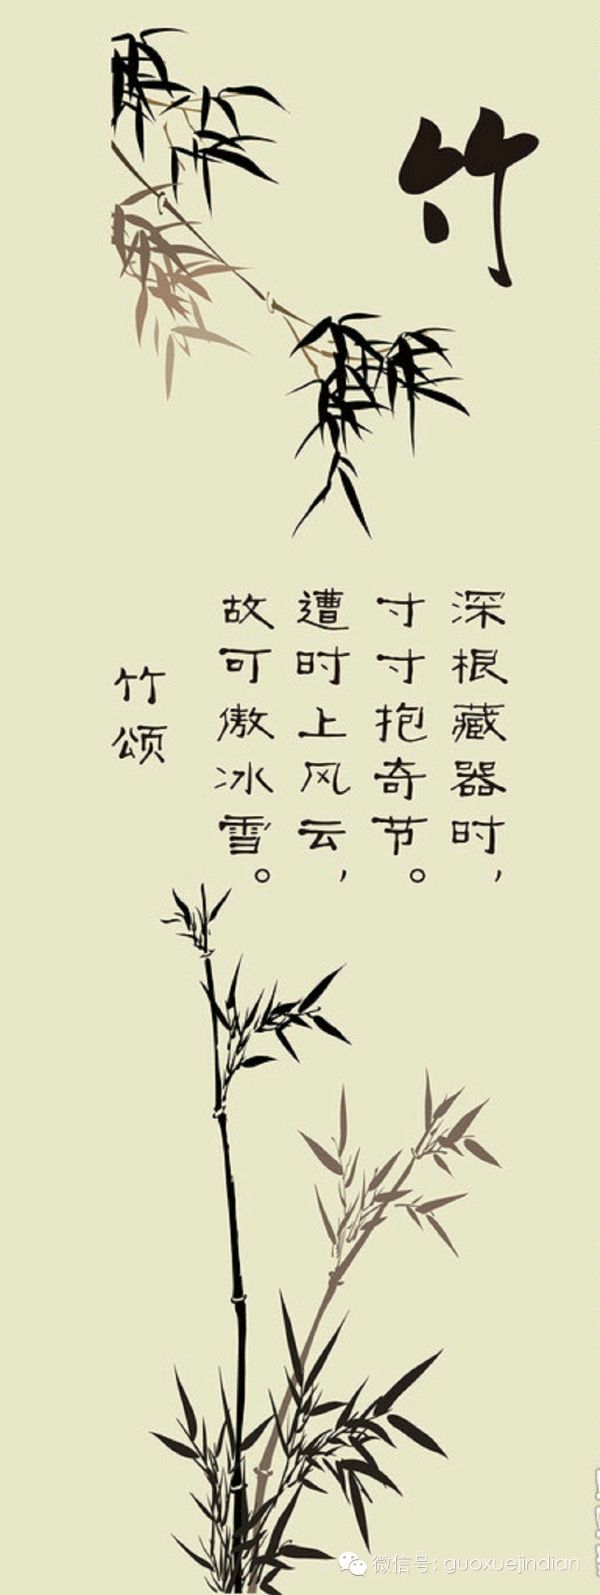 竹
深根藏器时，
寸寸抱奇节。
遭时上风云，
故可傲冰雪。
竹颂
微信号: guoxuejindian